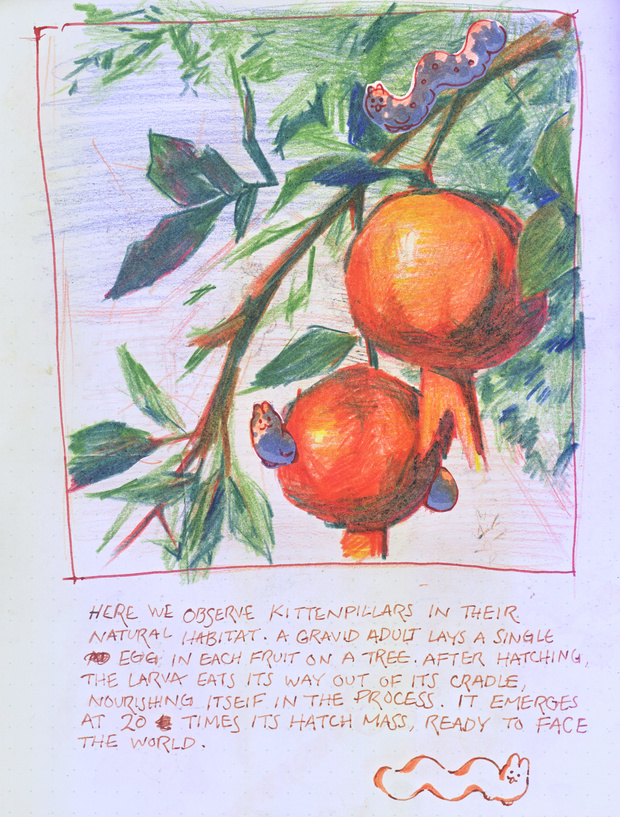 HERE WE OBSERVE KITTENPILLARS IN THEIR
NATURAL HABITAT. A GRAVID ADULT LAYS A SINGLE
EGG IN EACH FRUIT ON A TREE. AFTER HATCHING,
THE LARVA EATS ITS WAY OUT OF ITS CRADLE,
NOURISHING ITSELF IN THE PROCESS. IT EMERGES
AT 20 TIMES ITS HATCH MASS, READY TO FACE
THE WORLD.